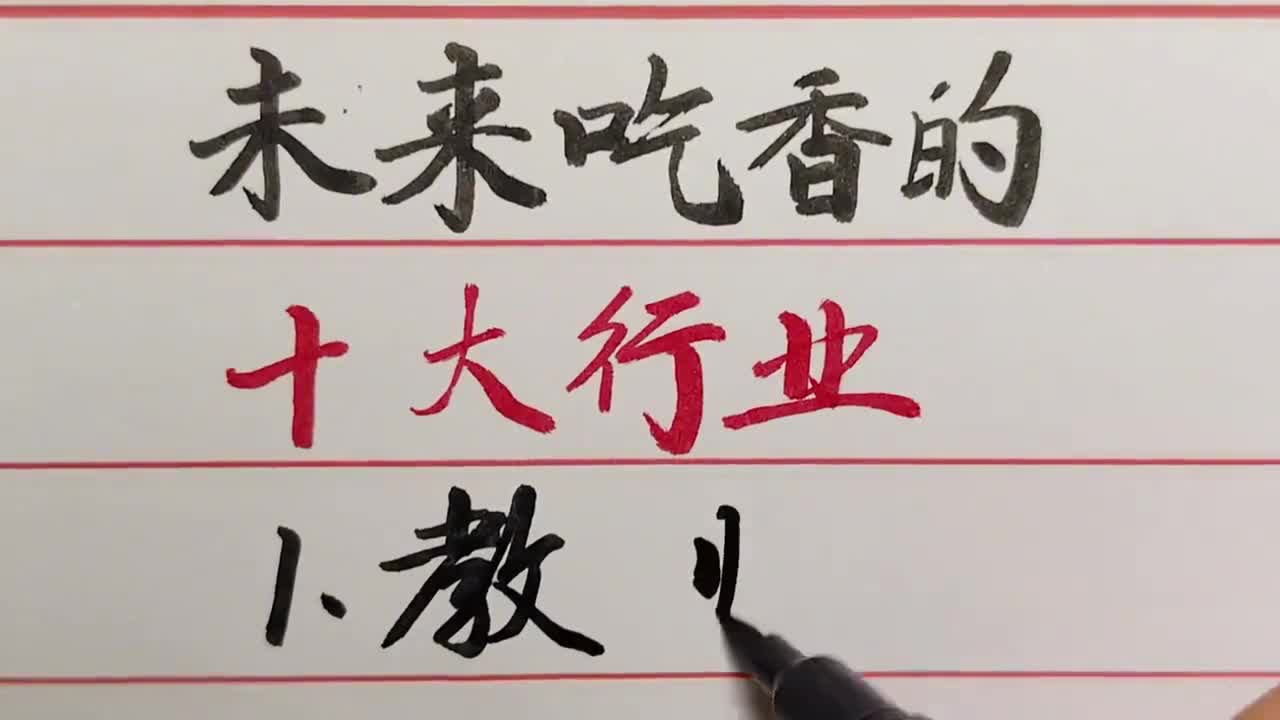 未来吃香的
十大行业
1.教